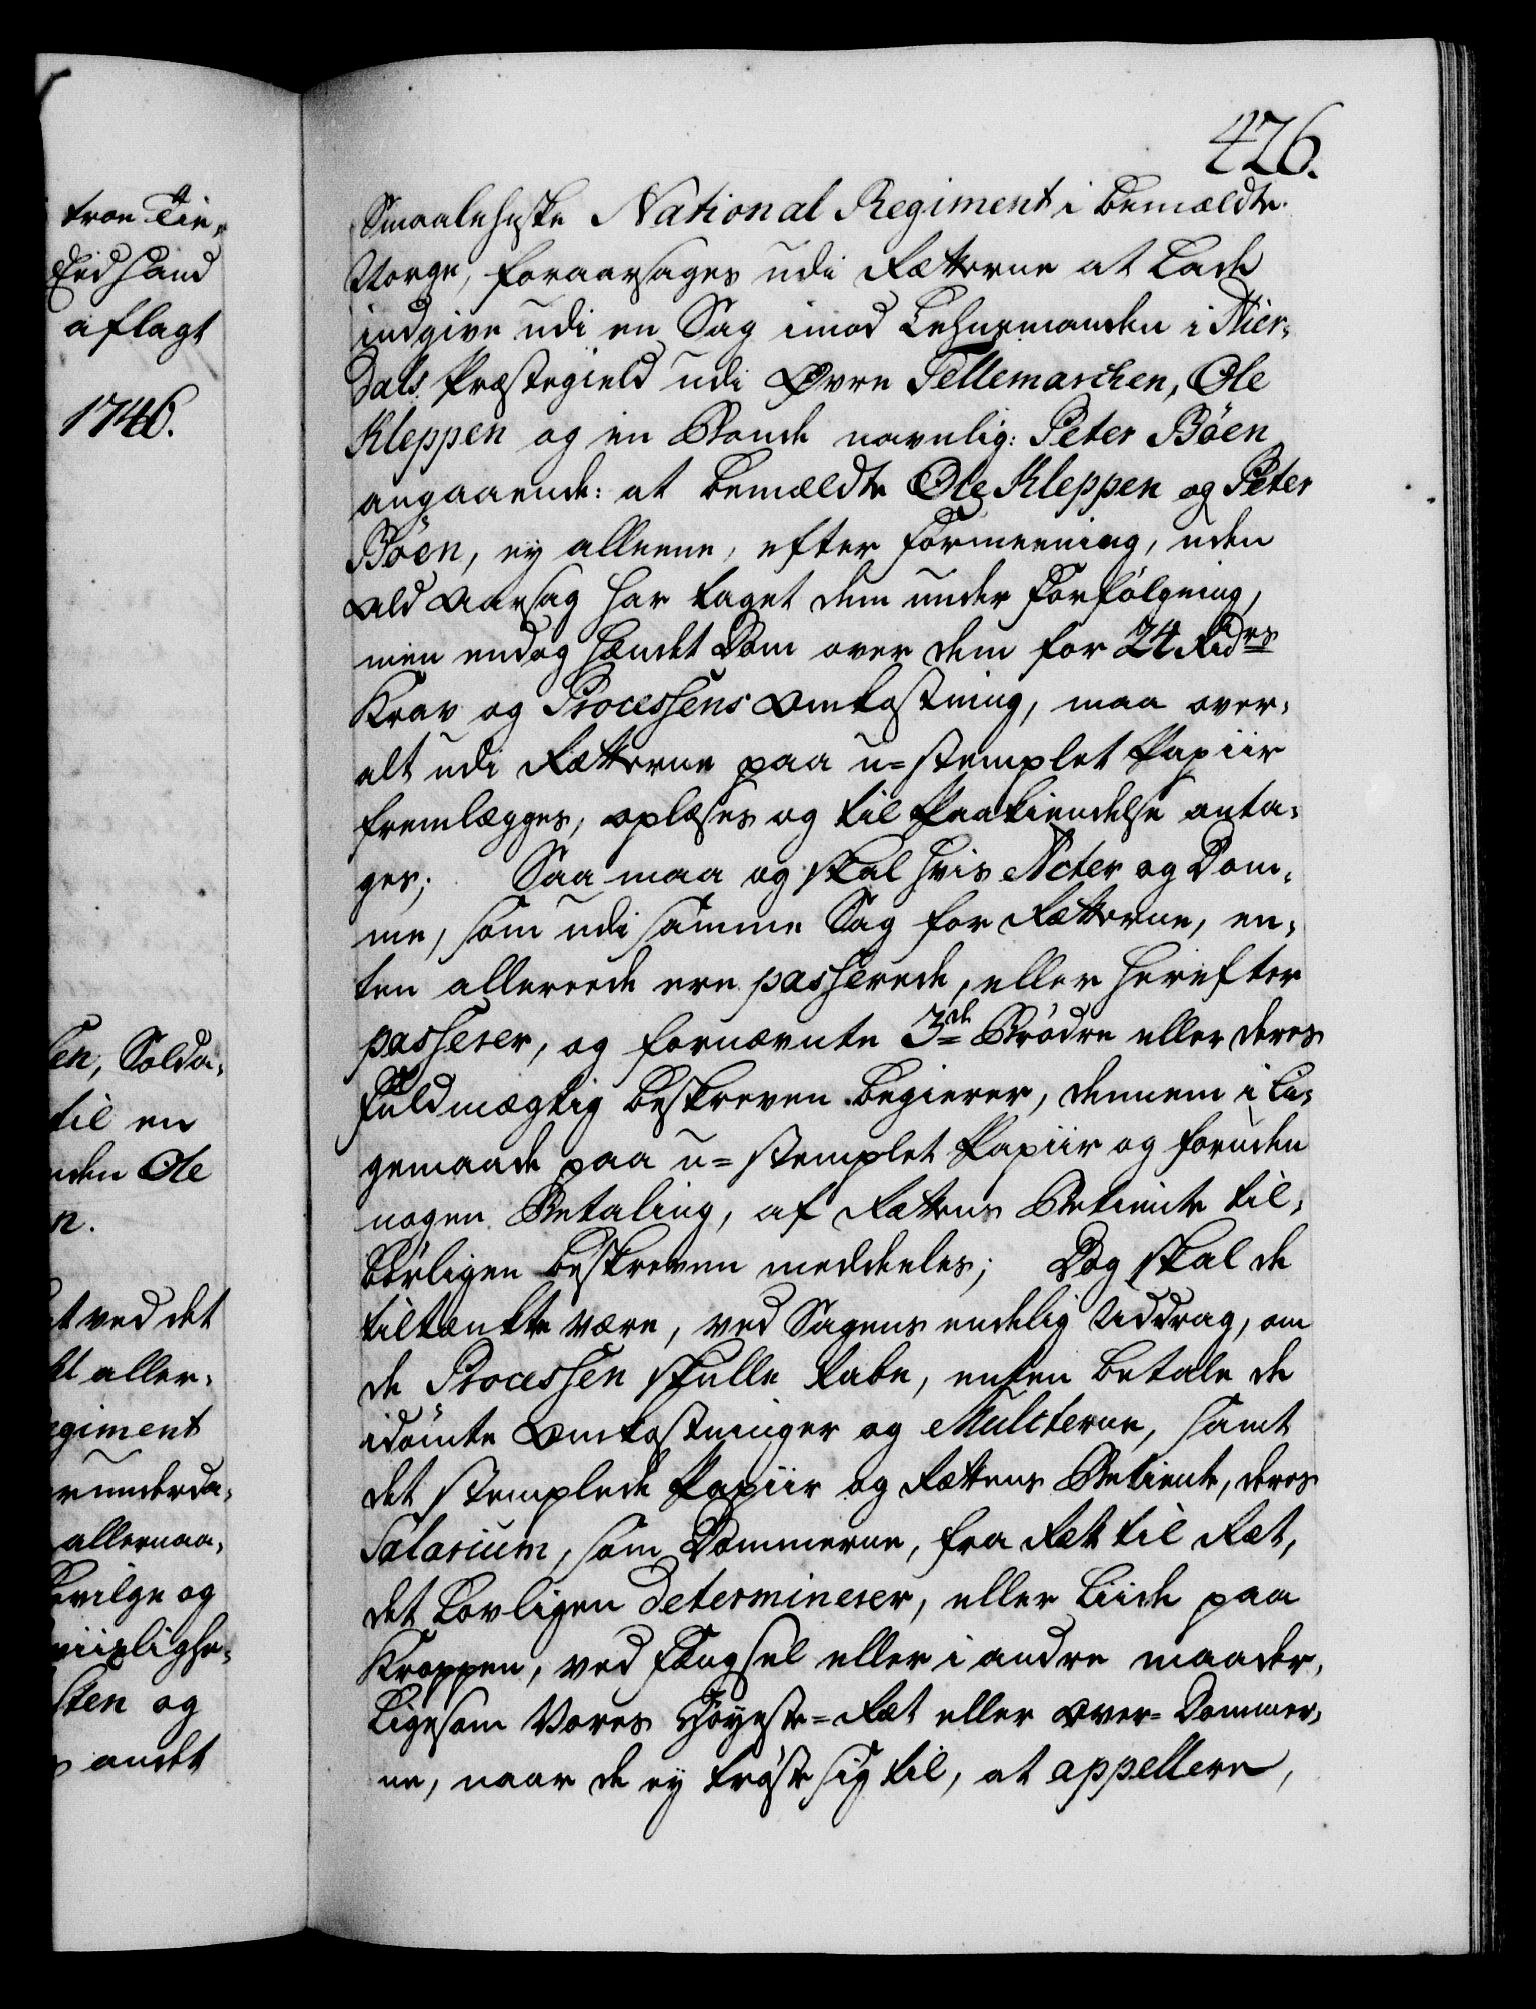 tron Tie-
Eid Haud
aflagt
1746.
sen, Solda-
til en
nden Ole
n.
at ved det
aller-
egiment
runderda-
allernaa-
bevilge og
sten og
andet
426.
Smaalehnske National Regiment i bemældte
Norge, foraarsages udi Rætterne at lade
indgive udi en Sag imod Lehnsmanden i Hier-
dals Præstegield udi Øvre Tellemarchen, Ole
Kleppen og en Bonde navnlig: Peter Böen
angaaende: at bemældte Ole Kleppen og Peter
Böen, ey alleene, efter Formeening, uden
ald Aarsag har taget dem under Forfölgning,
men endog hændet Dom over dem for 24 Rdrs
Krav og Processens Omkostning, maa over-
alt udi Rætterne paa u=stemplet Papiir
fremlægges, oplæses og til Paakiendelse anta-
ges; Saa maa og skal hvis Acter og Dom-
me, som udi samme Sag for Rætterne, en-
ten allereede ere passerede, eller herefter
passerer, og fornævnte 3de Brödre eller deres
Fuldmægtig beskreven begierer, dennem i li-
gemaade paa u=stemplet Papiir og foruden
nogen Betaling, af Rættens Betiente til-
börligen beskreven meddeeles; Dog skal de
tiltænkte være, ved Sagens endelig Uddrag, om
de Processen skulle tabe, enten betale de
idömte Omkostninger og Mulcterne, samt
det stemplede Papiir og Rættens Betiente, deres
Salarium, som Dommerne, fra Ræt til Ræt,
det lovligen determinerer, eller liide paa
Kroppen, ved Fængsel eller i andre maader,
ligesom Vores Höyeste=Ræt eller Over=Dommer-
ne, naar de ey tröste sig til, at appellere,